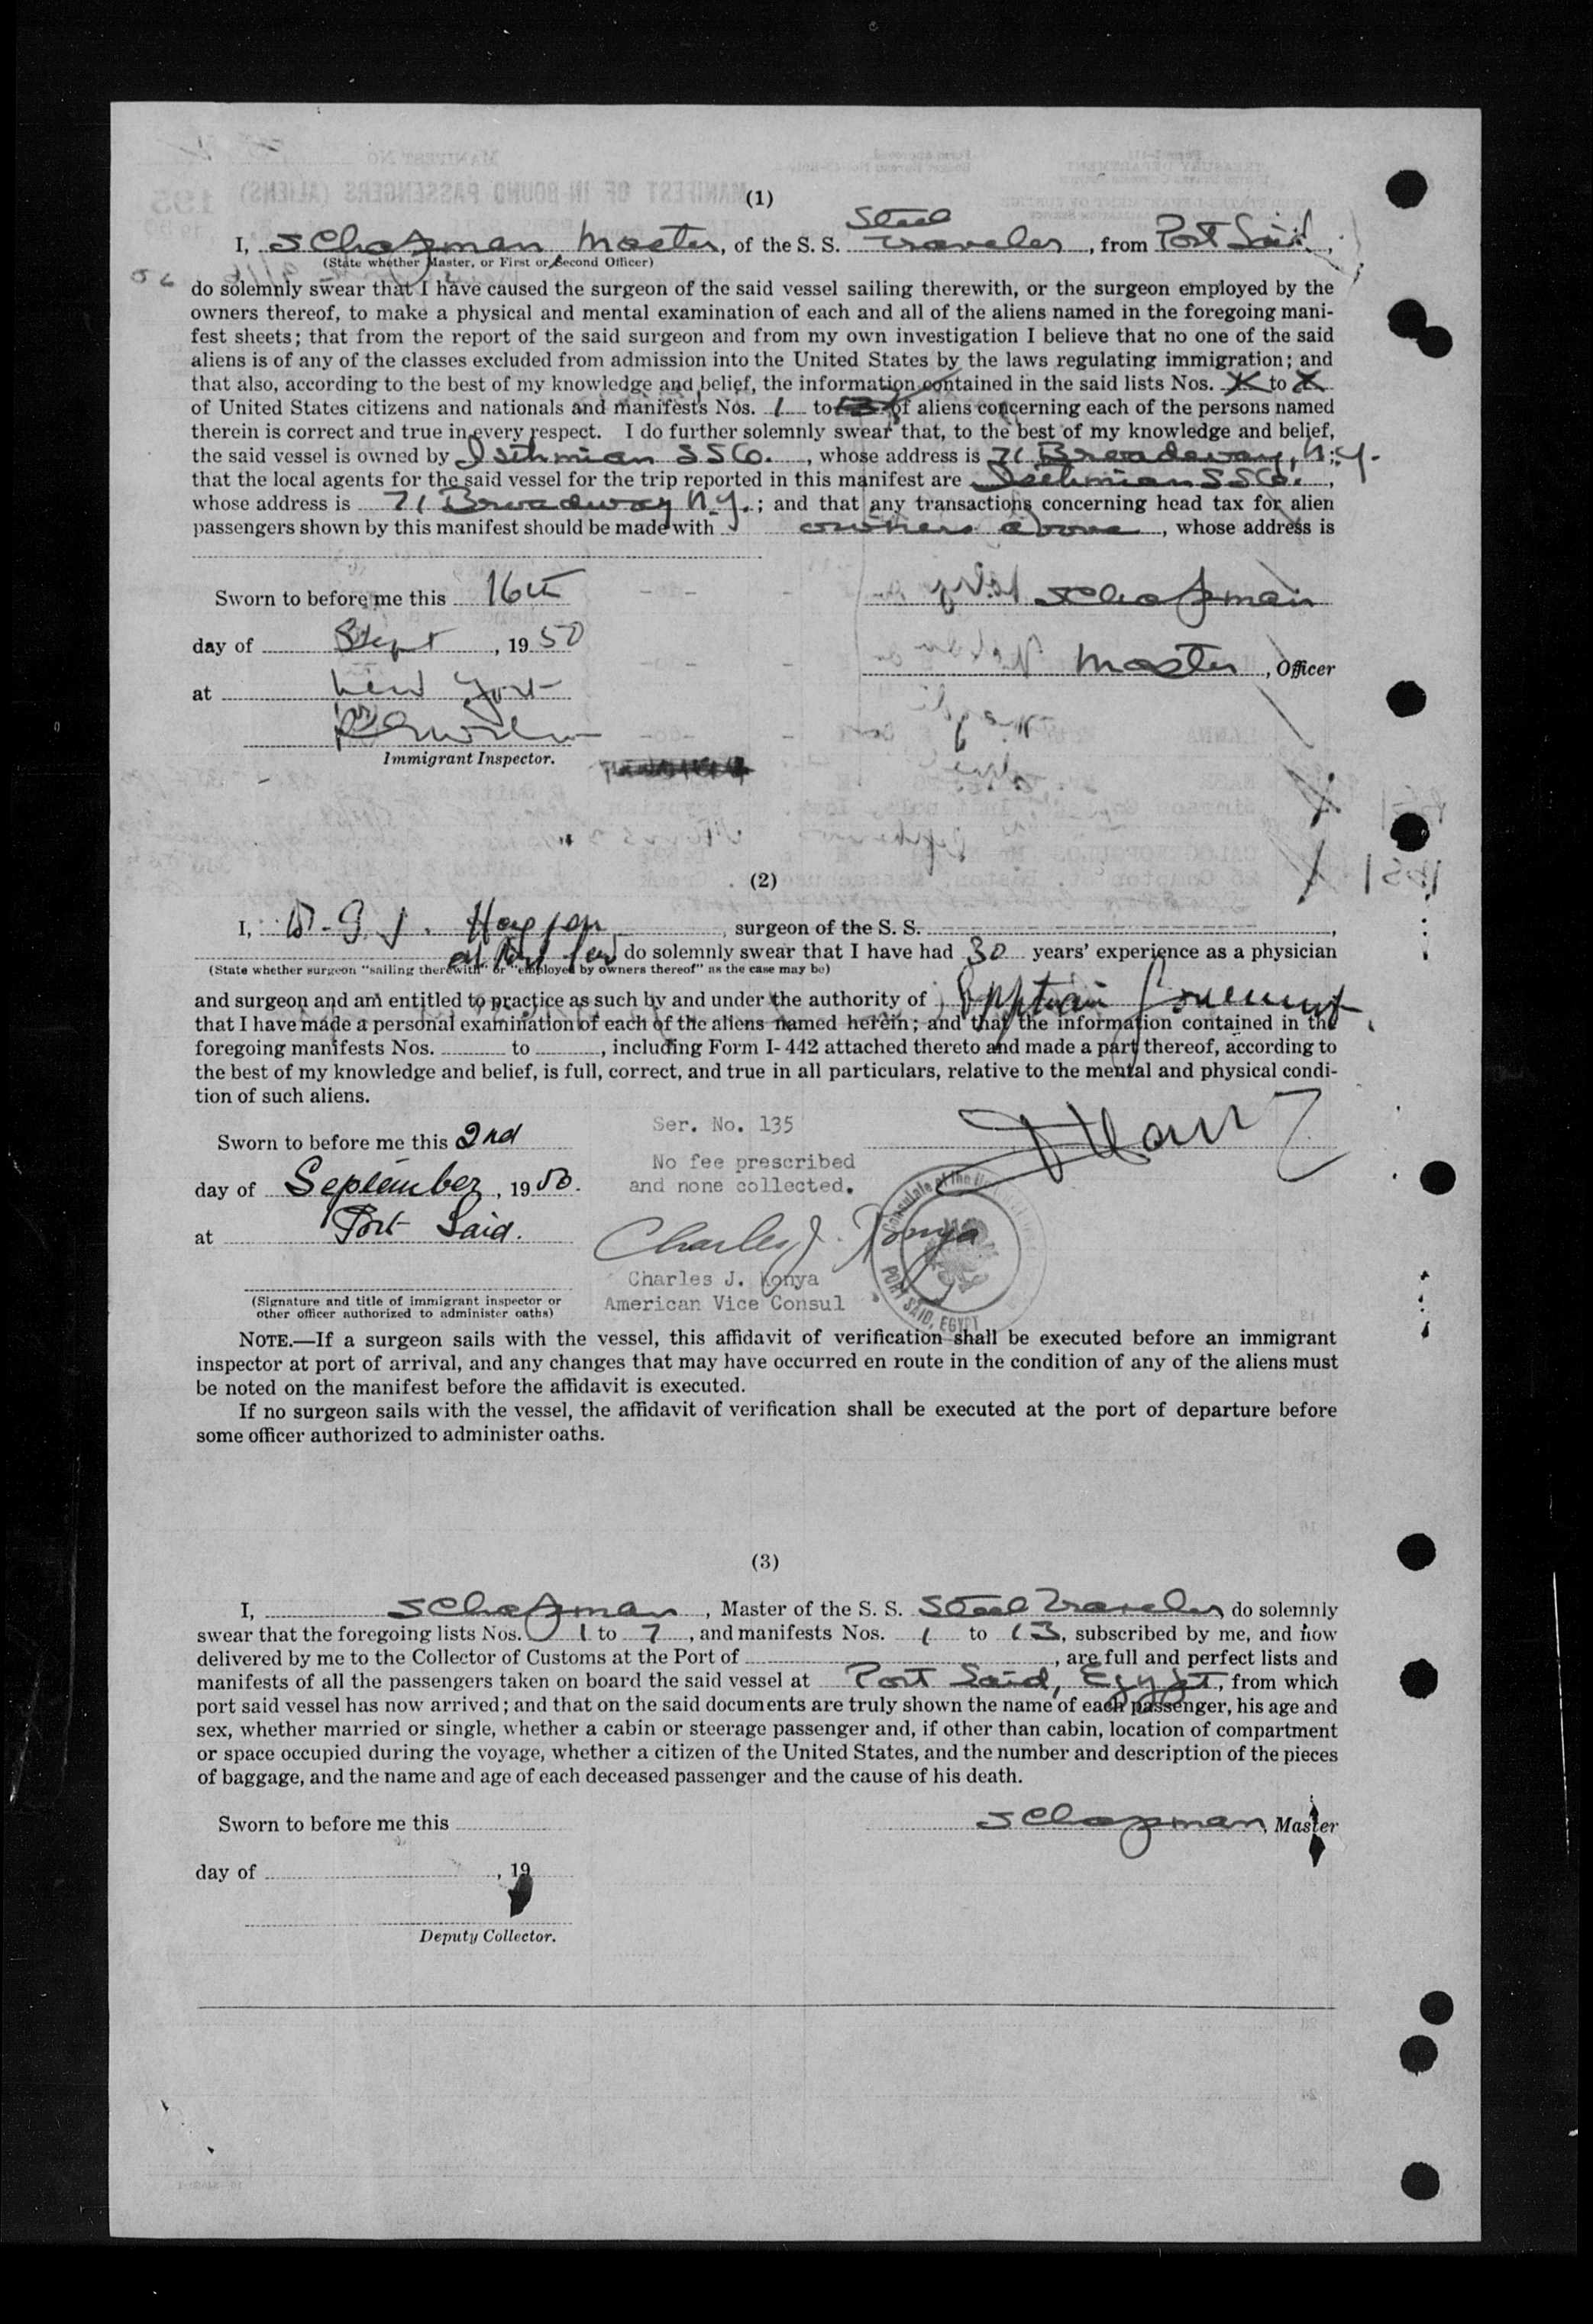 (1)
I, S Chapman Master, of the S. S. Steel Traveler, from Port Said,
(State whether Master, or First or Second Officer)
do solemnly swear that I have caused the surgeon of the said vessel sailing therewith, or the surgeon employed by the
owners thereof, to make a physical and mental examination of each and all of the aliens named in the foregoing mani-
fest sheets; that from the report of the said surgeon and from my own investigation I believe that no one of the said
aliens is of any of the classes excluded from admission into the United States by the laws regulating immigration; and
that also, according to the best of my knowledge and belief, the information contained in the said lists Nos. X to X
of United States citizens and nationals and manifests Nos. 1 to of aliens concerning each of the persons named
therein is correct and true in every respect. I do further solemnly swear that, to the best of my knowledge and belief,
the said vessel is owned by Isthmian S S Co., whose address is 71 Broadway, N.Y.
that the local agents for the said vessel for the trip reported in this manifest are Isthmian S S Co.,
whose address is 71 Broadway N.Y.; and that any transactions concerning head tax for alien
passengers shown by this manifest should be made with owners above, whose address is
Sworn to before me this 16th
S Chapman
day of Sept, 19 50
Master, Officer
at New York
Immigrant Inspector.
(2)
I, surgeon of the S. S.
do solemnly swear that I have had 30 years' experience as a physician
(State whether surgeon "sailing therewith" or "employed by owners thereof" as the case may be)
and surgeon and am entitled to practice as such by and under the authority of Egyptian Government
that I have made a personal examination of each of the aliens named herein; and that the information contained in the
foregoing manifests Nos. to , including Form I-442 attached thereto and made a part thereof, according to
the best of my knowledge and belief, is full, correct, and true in all particulars, relative to the mental and physical condi-
tion of such aliens.
Ser. No. 135
Sworn to before me this 2nd
No fee prescribed
and none collected.
day of September, 1950.
at Port Said.
Charles J. Konya
Charles J. Konya
American Vice Consul
Consulate of the
PORT SAID, EGYPT
(Signature and title of immigrant inspector or
other officer authorized to administer oaths)
NOTE.—If a surgeon sails with the vessel, this affidavit of verification shall be executed before an immigrant
inspector at port of arrival, and any changes that may have occurred en route in the condition of any of the aliens must
be noted on the manifest before the affidavit is executed.
If no surgeon sails with the vessel, the affidavit of verification shall be executed at the port of departure before
some officer authorized to administer oaths.
(3)
I, S Chapman, Master of the S. S. Steel Traveler, do solemnly
swear that the foregoing lists Nos. 1 to 7, and manifests Nos. 1 to 13, subscribed by me, and now
delivered by me to the Collector of Customs at the Port of , are full and perfect lists and
manifests of all the passengers taken on board the said vessel at Port Said, Egypt, from which
port said vessel has now arrived; and that on the said documents are truly shown the name of each passenger, his age and
sex, whether married or single, whether a cabin or steerage passenger and, if other than cabin, location of compartment
or space occupied during the voyage, whether a citizen of the United States, and the number and description of the pieces
of baggage, and the name and age of each deceased passenger and the cause of his death.
Sworn to before me this
S Chapman, Master
day of , 19
Deputy Collector.